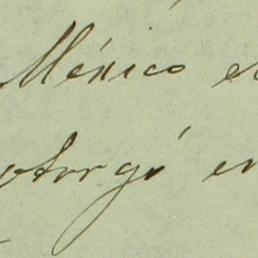 México e
otorgó en